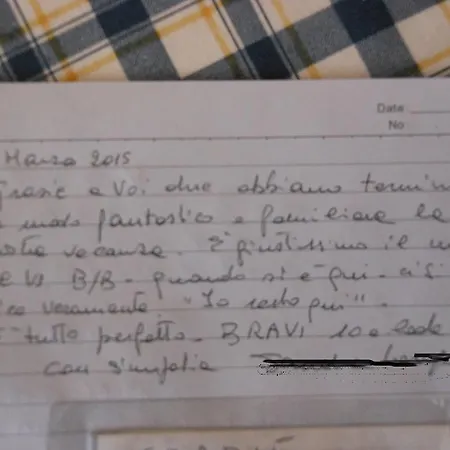 Date
No
Marzo 2015
Grazie a Voi due abbiamo termin
modo fantastico e familiare la
vacanza. È giustissimo il n
Vs B/B - quando si è qui - ci si
veramente "Io resto qui".
tutto perfetto. BRAVI 10 e lode
con simpatia